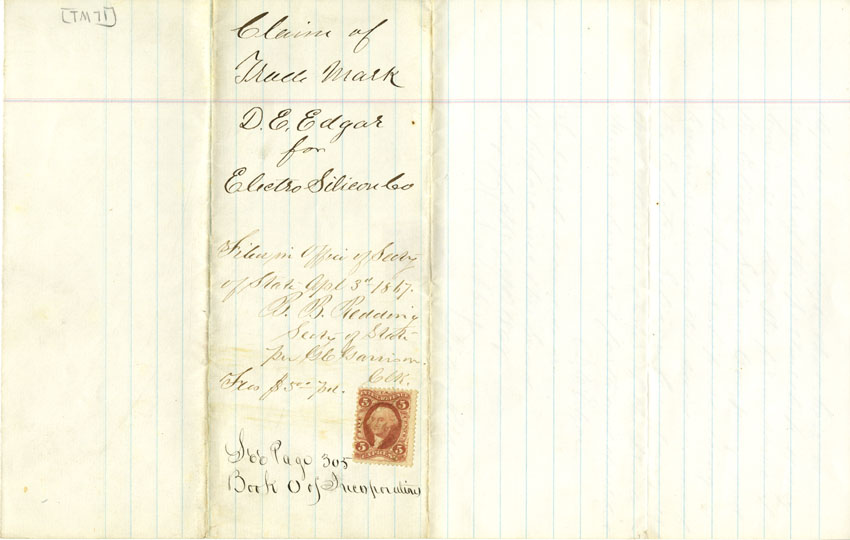 [TM 71]
Claim of
Trade Mark
D. E. Edgar
for
Electro Silicon Co
Filed in Office of Secty
of State Apl 3rd 1867.
B. B. Redding
Secty of State
per Garrison.
Clk.
Fees $5.00 pd.
5 5
5 5
See Page 305
Book O of Incorporations